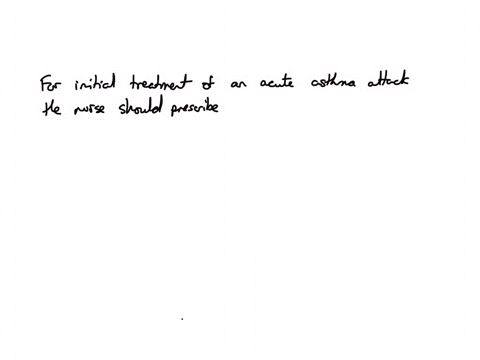 For initial treatment of an acute asthma attack
the nurse should prescribe